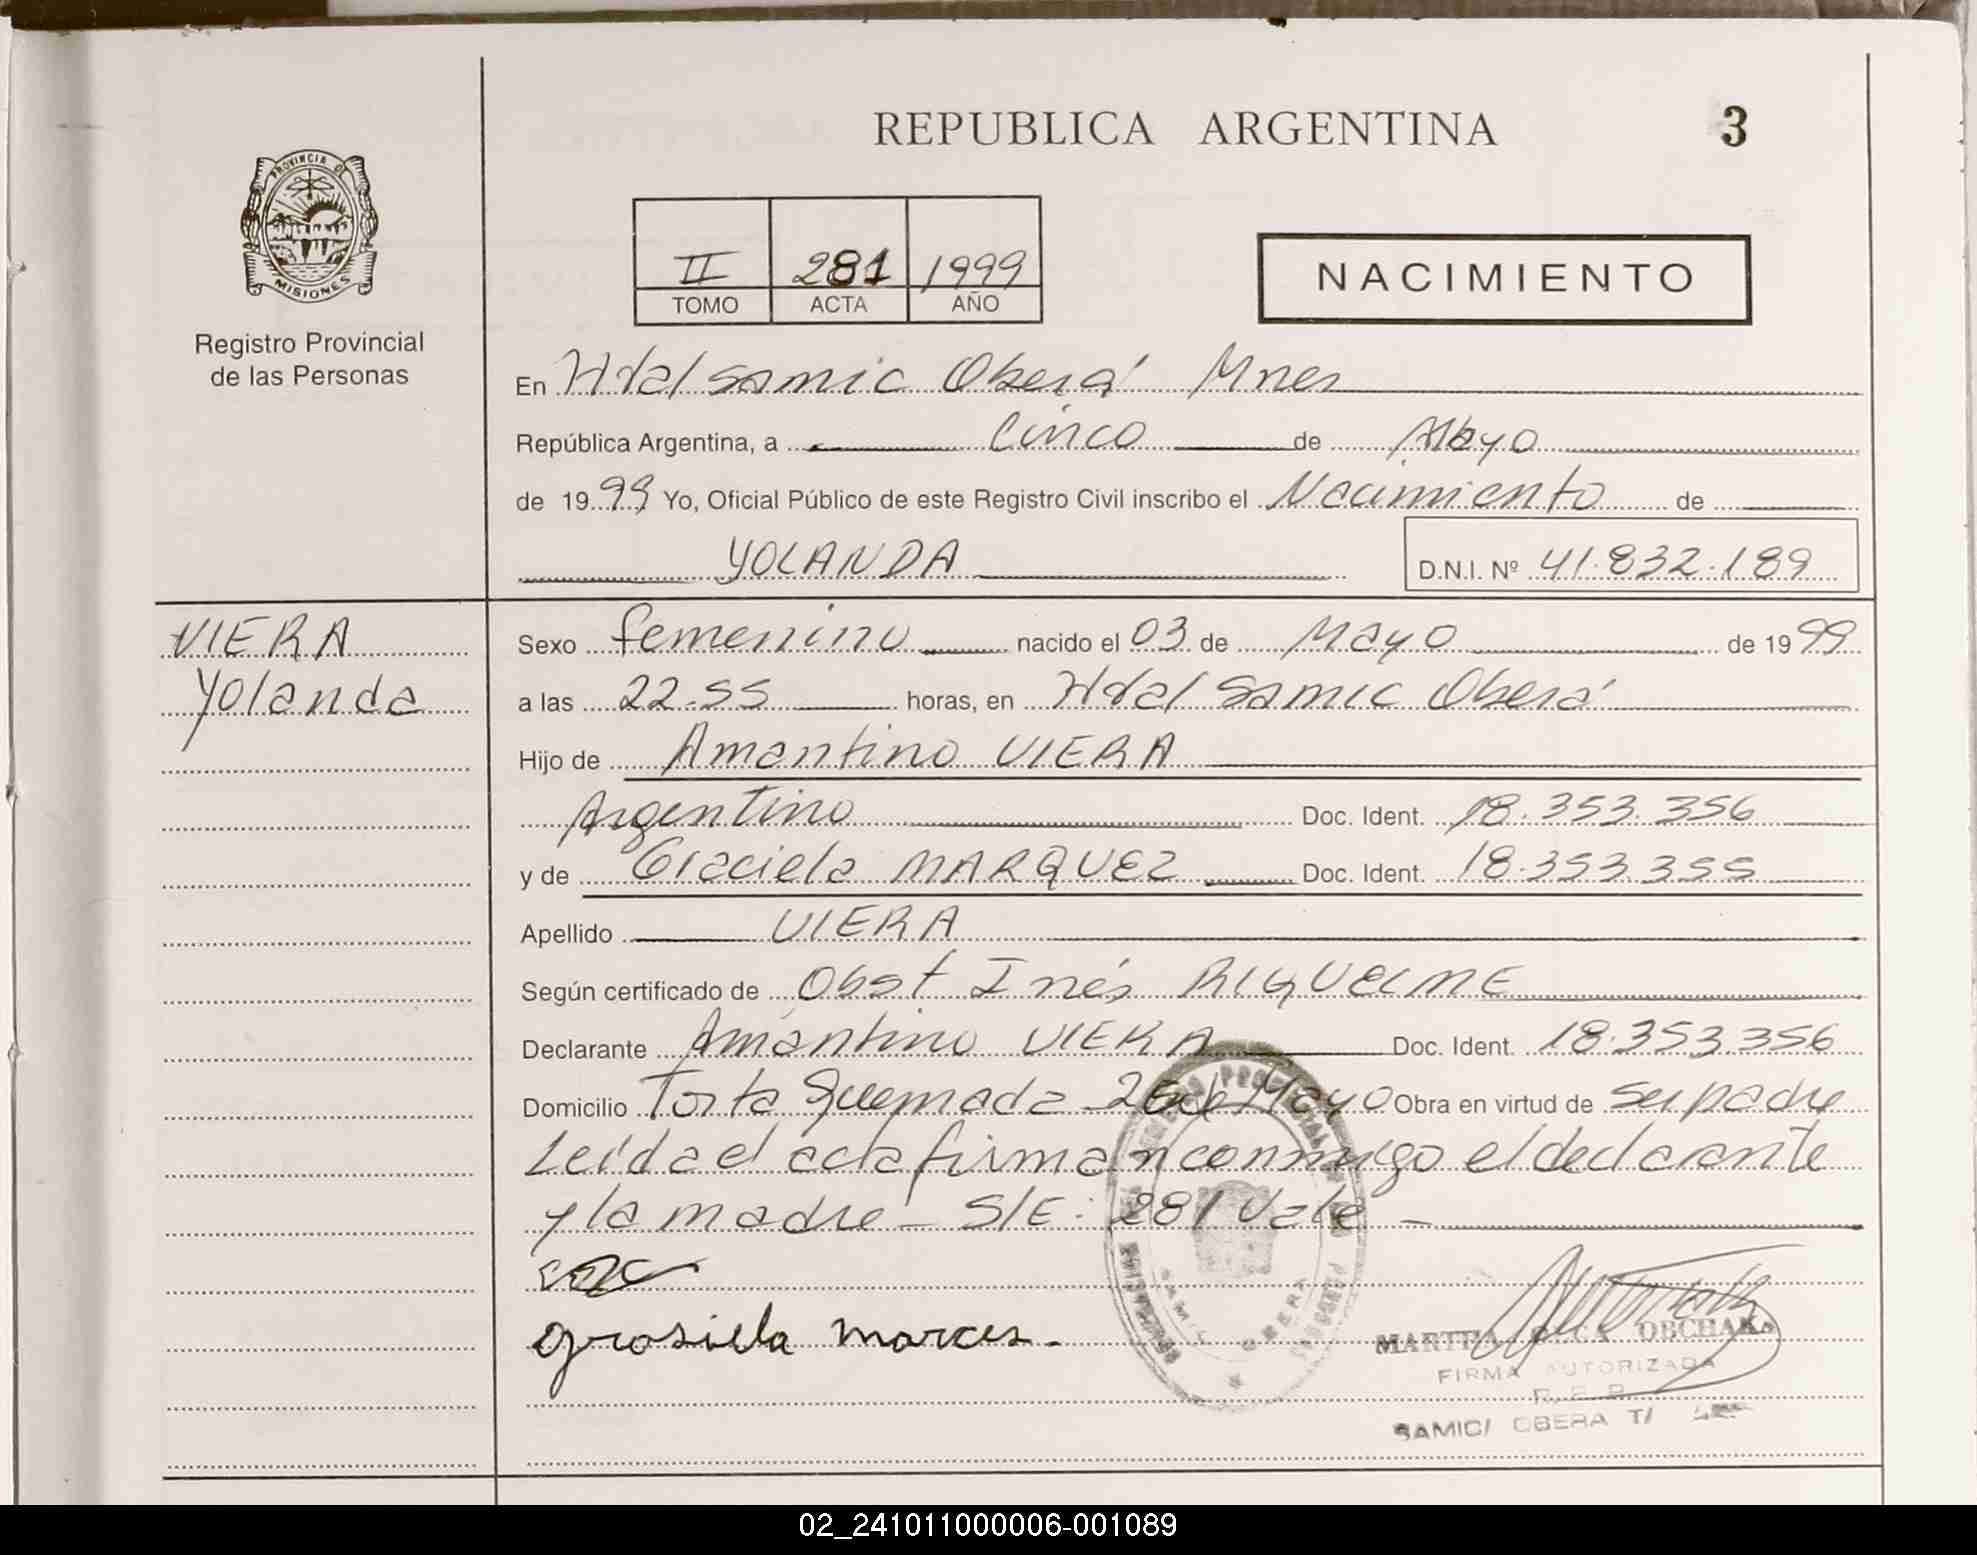 REPUBLICA ARGENTINA
3
PROVINCIA DE
MISIONES
Registro Provincial
de las Personas
II 281 1999
TOMO ACTA AÑO
NACIMIENTO
En Hdal Samic Oberá Mnes
República Argentina, a Cinco de Mayo
de 1999 Yo, Oficial Público de este Registro Civil inscribo el Nacimiento de
YOLANDA
D.N.I. Nº 41.832.189
VIERA
Yolanda
Sexo femenino nacido el 03 de Mayo de 1999
a las 22.55 horas, en Hdal Samic Oberá
Hijo de Amantino VIERA
Argentino Doc. Ident. 18.353.356
y de Graciela MARQUEZ Doc. Ident. 18.353.355
Apellido VIERA
Según certificado de Obst Inés RIQUELME
Declarante Amantino VIERA Doc. Ident. 18.353.356
Domicilio Torta Quemada 25 de Mayo Obra en virtud de ser padre
Leída el acta firman conmigo el declarante
y la madre - S/E: 281 Vale -
grosiela marces.
MARTHA OLGA OBCHAK
FIRMA AUTORIZADA
R. P. P.
SAMIC/ OBERA T/
SAMIC OBERA
02_241011000006-001089